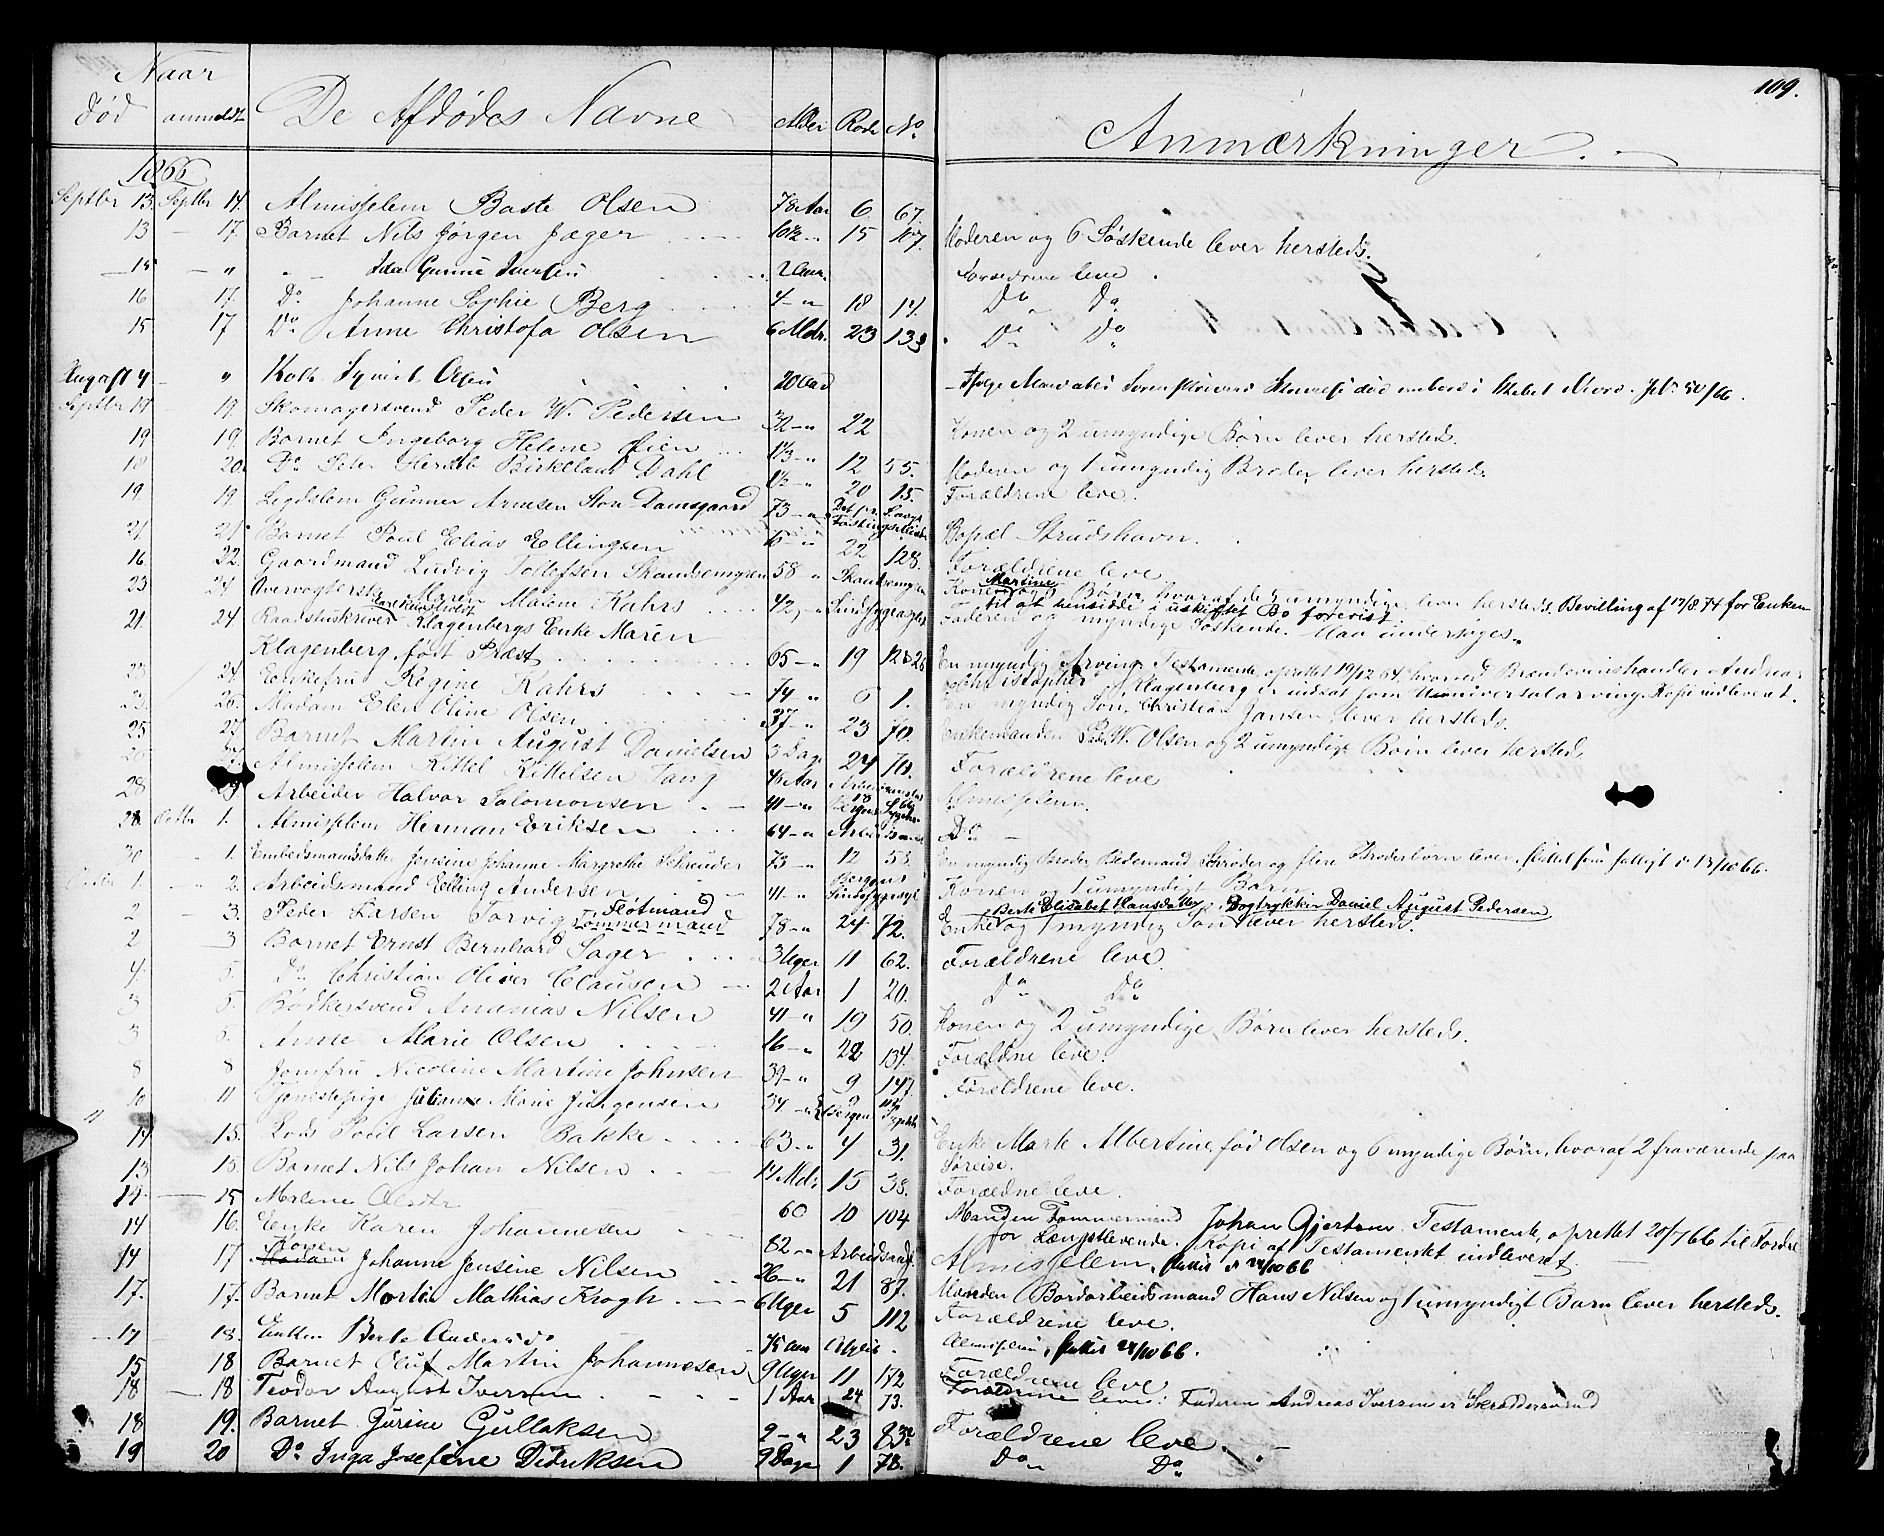 109.
Naar
død anmeldt De Afdødes Navne Alder Rode No Anmærkninger.
1866
Septbr 13. Septbr 14. Almisselem Baste Olsen 78 Aar 6 67.
13 — 17. Barnet Nils Jørgen Jæger 10½ " 15 Moderen og 6 Søskende lever hersteds.
15 — " " Ida Gurine Iversen 2 Forældrene leve.
16 17. Do Johanne Sophie Berg 4 — " 18 14. Do Do
15 17 Do Anne Christofa Olsen 6 Mdr. 23 133 Do Do
August 4 — " 20 Aar
Septbr 17 19. Skomagersvend Peder W. Pedersen 32 — " 22 Konen og 2 umyndige Børn lever hersteds.
19 19. Barnet Ingeborg Helene Øien 1⅓ — " 12 55. Moderen og 1 umyndig Broder lever hersteds.
18 20. Do Peter Herleb Birkeland Dahl 1½ — " 20 15. Forældrene leve.
19 19. Legdslem Gunner Arnesen Store Damsgaard 73 — " Bopæl Strudshavn.
21 21. Barnet Poul Elias Ellingsen " 22 128. Forældrene leve
16 22. Gaardmand Ludvig Tollefsen Skandsemyren 58 " Skandsemyren Konen Martine og Børn, hvoraf de 3 umyndige, lever hersteds. Bevilling af 12/8.74 for Enken
til at hensidde i uskiftet Bo forevist.
23 24 Maren Malene Kahrs 42 " Sindssygeasylet Faderen og myndige Søskende. Maa undersøges.
21. 24 Raadstuskriver Klagenbergs Enke Maren
Klagenberg, født Præst 65 — " 19 En myndig Arving. Testamente, oprettet 19/12 64, hvorved Brændevinshandler Andreas
Christopher Klagenberg er indsat som Universalarving. Kopi indleveret.
23 24. Enkefru Regine Kahrs 74 " 6 1. En myndig Søn, Christian Jansen, lever hersteds.
23. 26. Madam Elen Oline Olsen 37 — " 23 70. Enkemanden P. W. Olsen og 2 umyndige Børn lever hersteds
25 27. Barnet Martin August Danielsen 3 Dage 24 70. Forældrene leve
Almisselem Kittel Kittelsen Tang Aar Almisselem.
28 Arbeider Halvor Salomonsen 41 — " Do
28 Octbr 1. Almisselem Herman Eriksen 64 — "
30 " 1. Embedsmandsdatter Jensine Johanne Margrethe Schrøder 73 — " 12 58. En myndig Broder Bedemand Schrøder og flere Broderbørn lever. 13/10 66.
1. " 2. Arbeidsmand Elling Andersen 41 — " Bergens Sindssygeasyl Konen og 1 umyndigt Barn
2 — 3. Peder Larsen Torvig Fløtmand Tømmermand 78 — " 24 72. Enke Berte Elisabet Hansdatter og 1 myndig Søn Bogtrykker Daniel August Pedersen lever hersteds.
2 3 Barnet Ernst Bernhard Sager 3 Uger 11 62. Forældrene leve.
4. 5. Do Christian Oliver Clausen 2 Aar 1 20. Do Do
3 5. Bødkersvend Ananias Nilsen 41 — " 19 50. Konen og 2 umyndige Børn lever hersteds.
3 5. Anne Marie Olsen 16 — " 22 134. Forældrene leve.
8 8 Jomfru Nicoline Martine Johnsen 39 — " 9 147. Forældrene leve.
10 11 Tjenestepige Juliane Marie Jürgensen 34 — "
14. 15. Lods Poul Larsen Bakke 63 — " 4 31. Enke Marte Albertine, fød Olsen og 6 myndige Børn, hvoraf 2 fraværende paa
Søreise.
13 15. Barnet Nils Johan Nilsen 14 Mdr 15 38. Forældne leve.
14. — 15 Malene 60 10 104 Manden Tømmermand Johan Gjertsen. Testamente, oprettet 20/7 66 til Fordel
for Længstlevende. Kopi af Testamentet indleveret.
14 16. Enke Karen Johannesen 82 — " Arbeidsanst. Almisselem, 24/10 66
14 17 Konen Madam Johanne Jensine Nilsen 26 — " 21 87. Manden Bordarbeidsmand Hans Nilsen og 1 umyndigt Barn lever hersteds.
17. 17. Barnet Martin Mathias Krogh 6 Uger 5 112 Forældrene leve.
17 — 18. Enken Berte 75 Aar Almisselem, 24/10 66.
15 18 Barnet Oluf Martin Johannesen 9 Uger 11 172 Forældrene leve
18 — 18 Teodor August Iversen 1 Aar 24 73. Forældrene leve. Faderen Andreas Iversen er Skræddersvend
18 19. Barnet Gurine Gullaksen 2 — " 23 83 Forældrene leve.
19 20 Do Inga Josefine Didriksen 9 Dage 1 78. Do Do